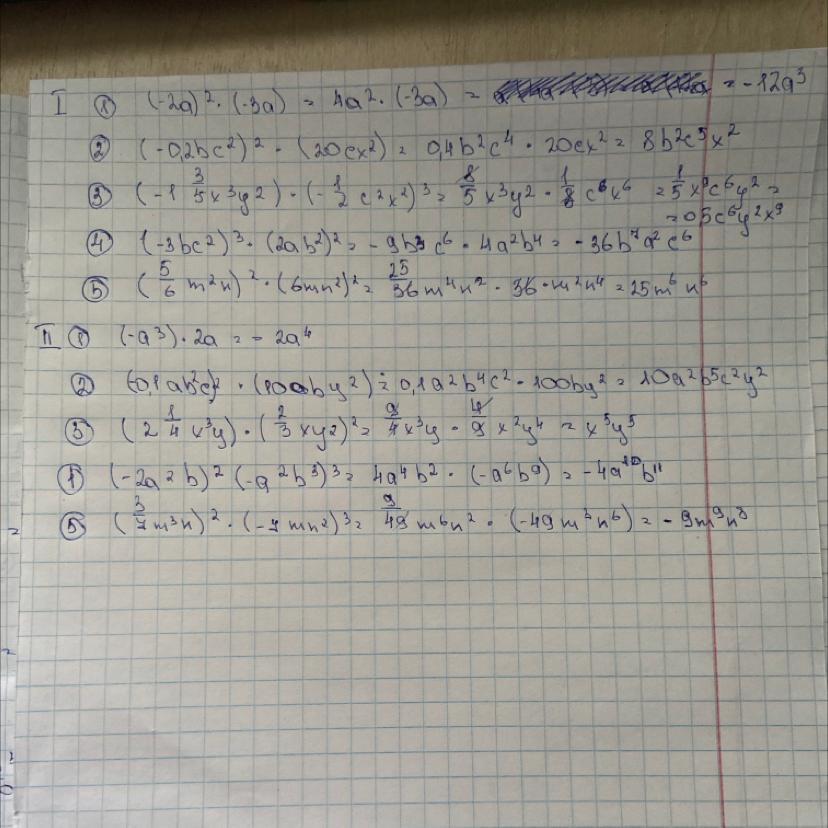 I ① (-2a)² · (-3a) = 4a² · (-3a) = = -12a³
② (-0,2bc²)² · (20cx²) = 0,4b²c⁴ · 20cx² = 8b²c⁵x²
③ (-1 3/5 x³y²) · (-1/2 c²x²)³ = 8/5 x³y² · 1/8 c⁶x⁶ = 1/5 x⁹c⁶y² =
= 0,5c⁶y²x⁹
④ (-3bc²)³ · (2ab²)² = -9b³c⁶ · 4a²b⁴ = -36b⁷a²c⁶
⑤ (5/6 m²n)² · (6mn²)² = 25/36 m⁴n² · 36 · m²n⁴ = 25m⁶n⁶
II ① (-a³) · 2a = -2a⁴
② (-0,1ab²c)² · (100by²) = 0,1a²b⁴c² · 100by² = 10a²b⁵c²y²
③ (2 1/4 x³y) · (2/3 xy²)² = 9/4 x³y · 4/9 x²y⁴ = x⁵y⁵
④ (-2a²b)² (-a²b³)³ = 4a⁴b² · (-a⁶b⁹) = -4a¹⁰b¹¹
⑤ (3/7 m³n)² · (-7mn²)³ = 9/49 m⁶n² · (-49m³n⁶) = -9m⁹n⁸